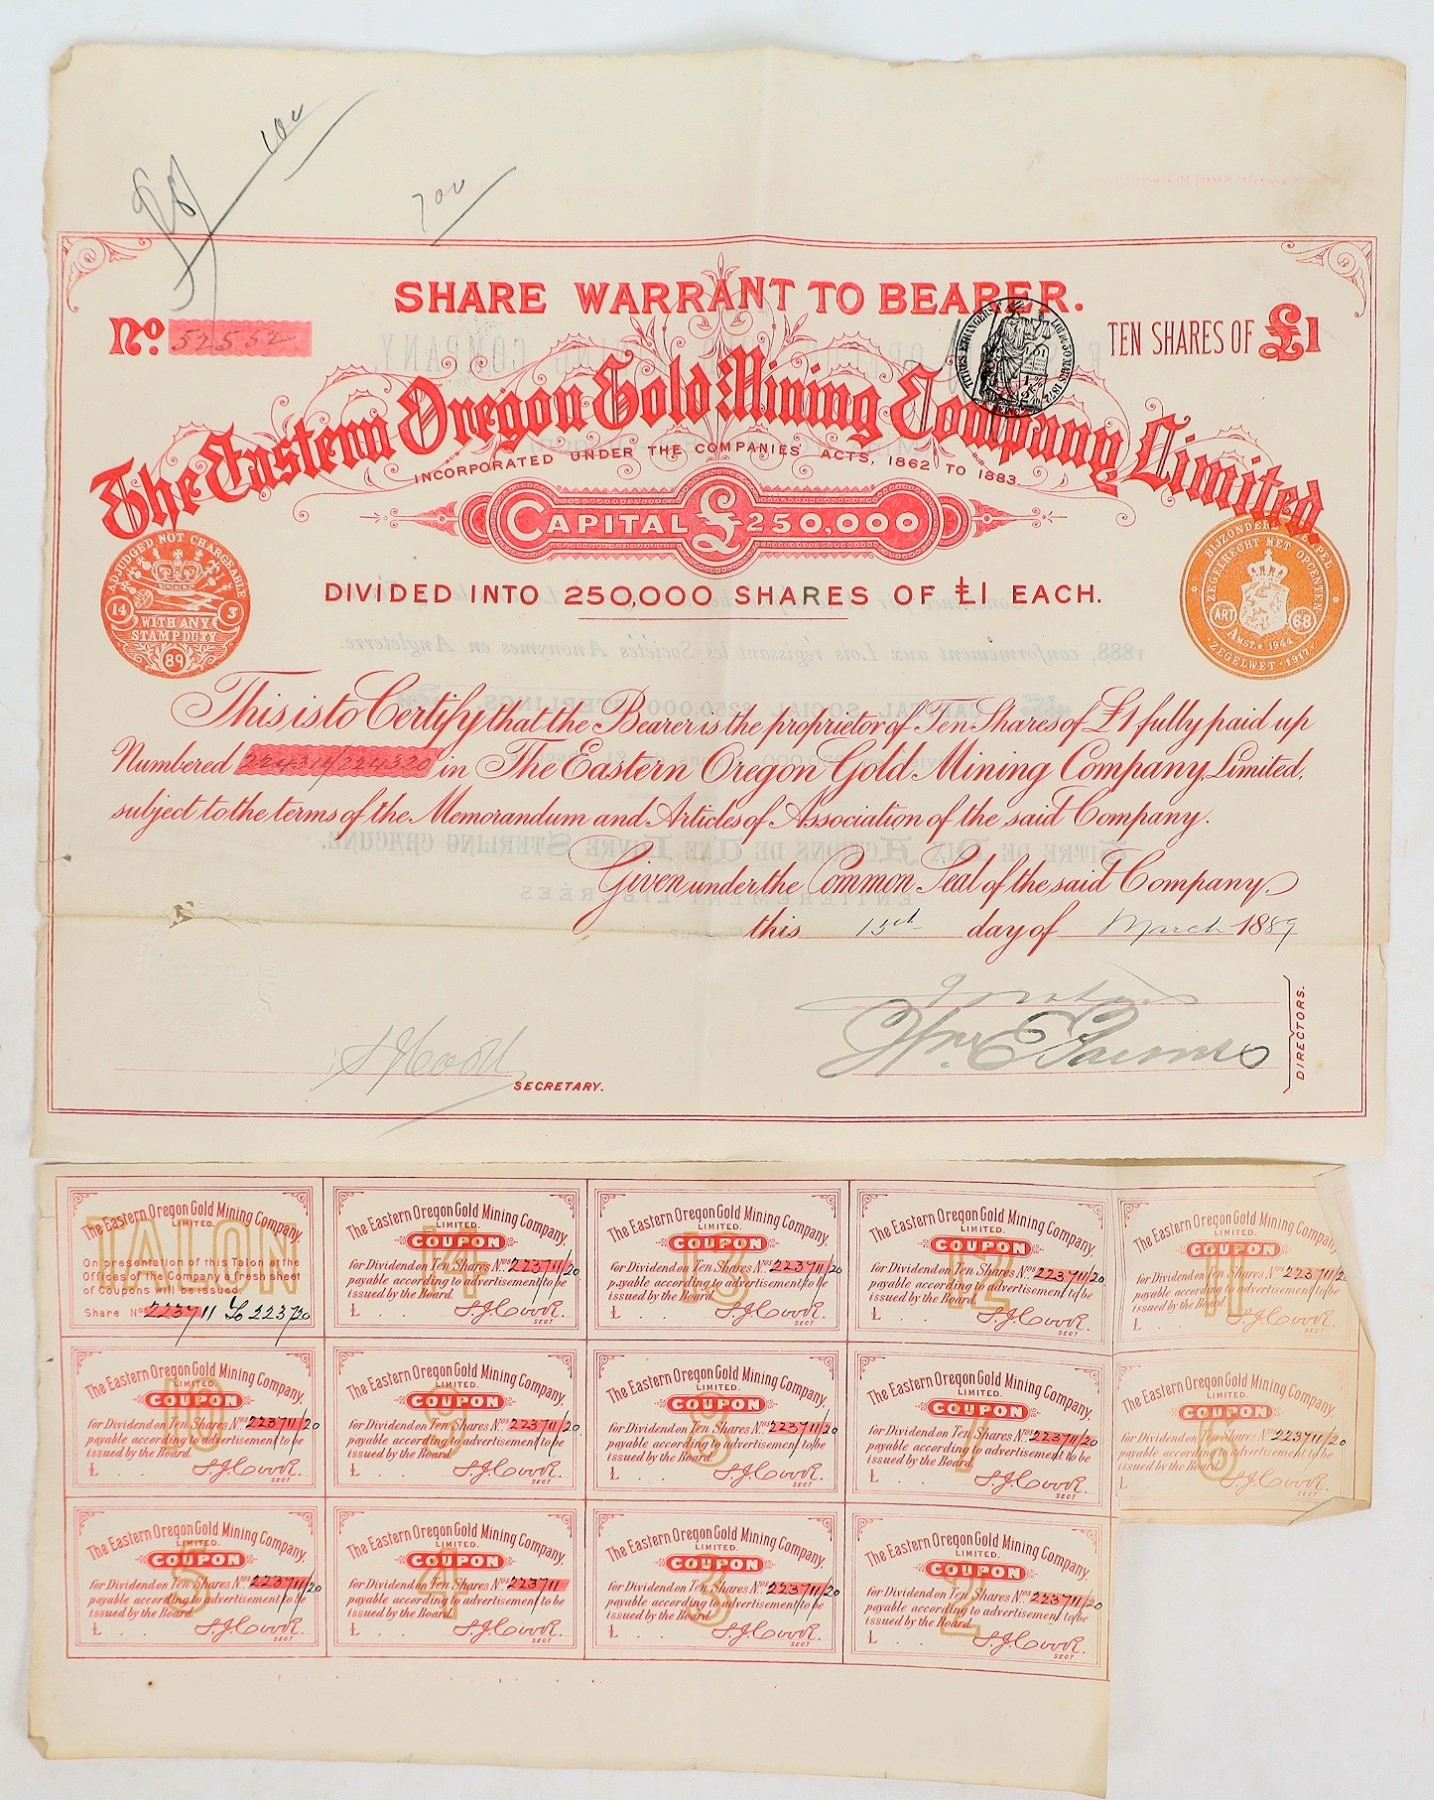 100
700
SHARE WARRANT TO BEARER.
No. 52552
TEN SHARES OF £1
TITRES ETRANGERS
LOI DU 30 MARS 1872
The Eastern Oregon Gold Mining Company, Limited.
INCORPORATED UNDER THE COMPANIES' ACTS, 1862 TO 1883.
CAPITAL £250,000
DIVIDED INTO 250,000 SHARES OF £1 EACH.
ADJUDGED NOT CHARGEABLE
14 3
WITH ANY
STAMP DUTY
89
BIJZONDER ZEGEL
ZEGELRECHT MET OPCENTEN
ART 68
AMST. 1944
ZEGELWET 1917
This is to Certify that the Bearer is the proprietor of Ten Shares of £1 fully paid up
Numbered 224311/224320 in The Eastern Oregon Gold Mining Company, Limited,
subject to the terms of the Memorandum and Articles of Association of the said Company.
Given under the Common Seal of the said Company,
this 13th day of March 1889
Wm E
DIRECTORS.
S J Cook
SECRETARY.
TALON
The Eastern Oregon Gold Mining Company,
LIMITED.
On presentation of this Talon at the
Offices of the Company a fresh sheet
of Coupons will be issued.
Share Nos 223711 to 223720
14
The Eastern Oregon Gold Mining Company,
LIMITED.
COUPON
for Dividend on Ten Shares Nos 223711/20
payable according to advertisement to be
issued by the Board.
£ . . S.J. Cook.
SECY
13
The Eastern Oregon Gold Mining Company,
LIMITED.
COUPON
for Dividend on Ten Shares Nos 223711/20
payable according to advertisement to be
issued by the Board.
£ . . S.J. Cook.
SECY
12
The Eastern Oregon Gold Mining Company,
LIMITED.
COUPON
for Dividend on Ten Shares Nos 223711/20
payable according to advertisement to be
issued by the Board.
£ . . S.J. Cook.
SECY
11
The Eastern Oregon Gold Mining Company,
LIMITED.
COUPON
for Dividend on Ten Shares Nos 223711/20
payable according to advertisement to be
issued by the Board.
£ . . S.J. Cook.
SECY
10
The Eastern Oregon Gold Mining Company,
LIMITED.
COUPON
for Dividend on Ten Shares Nos 223711/20
payable according to advertisement to be
issued by the Board.
£ . . S.J. Cook.
SECY
9
The Eastern Oregon Gold Mining Company,
LIMITED.
COUPON
for Dividend on Ten Shares Nos 223711/20
payable according to advertisement to be
issued by the Board.
£ . . S.J. Cook.
SECY
8
The Eastern Oregon Gold Mining Company,
LIMITED.
COUPON
for Dividend on Ten Shares Nos 223711/20
payable according to advertisement to be
issued by the Board.
£ . . S.J. Cook.
SECY
7
The Eastern Oregon Gold Mining Company,
LIMITED.
COUPON
for Dividend on Ten Shares Nos 223711/20
payable according to advertisement to be
issued by the Board.
£ . . S.J. Cook.
SECY
6
The Eastern Oregon Gold Mining Company,
LIMITED.
COUPON
for Dividend on Ten Shares Nos 223711/20
payable according to advertisement to be
issued by the Board.
£ . . S.J. Cook.
SECY
5
The Eastern Oregon Gold Mining Company,
LIMITED.
COUPON
for Dividend on Ten Shares Nos 223711/20
payable according to advertisement to be
issued by the Board.
£ . . S.J. Cook.
SECY
4
The Eastern Oregon Gold Mining Company,
LIMITED.
COUPON
for Dividend on Ten Shares Nos 223711
payable according to advertisement to be
issued by the Board.
£ . . S.J. Cook.
SECY
3
The Eastern Oregon Gold Mining Company,
LIMITED.
COUPON
for Dividend on Ten Shares Nos 223711/20
payable according to advertisement to be
issued by the Board.
£ . . S.J. Cook.
SECY
2
The Eastern Oregon Gold Mining Company,
LIMITED.
COUPON
for Dividend on Ten Shares Nos 223711/20
payable according to advertisement to be
issued by the Board.
£ . . S.J. Cook.
SECY